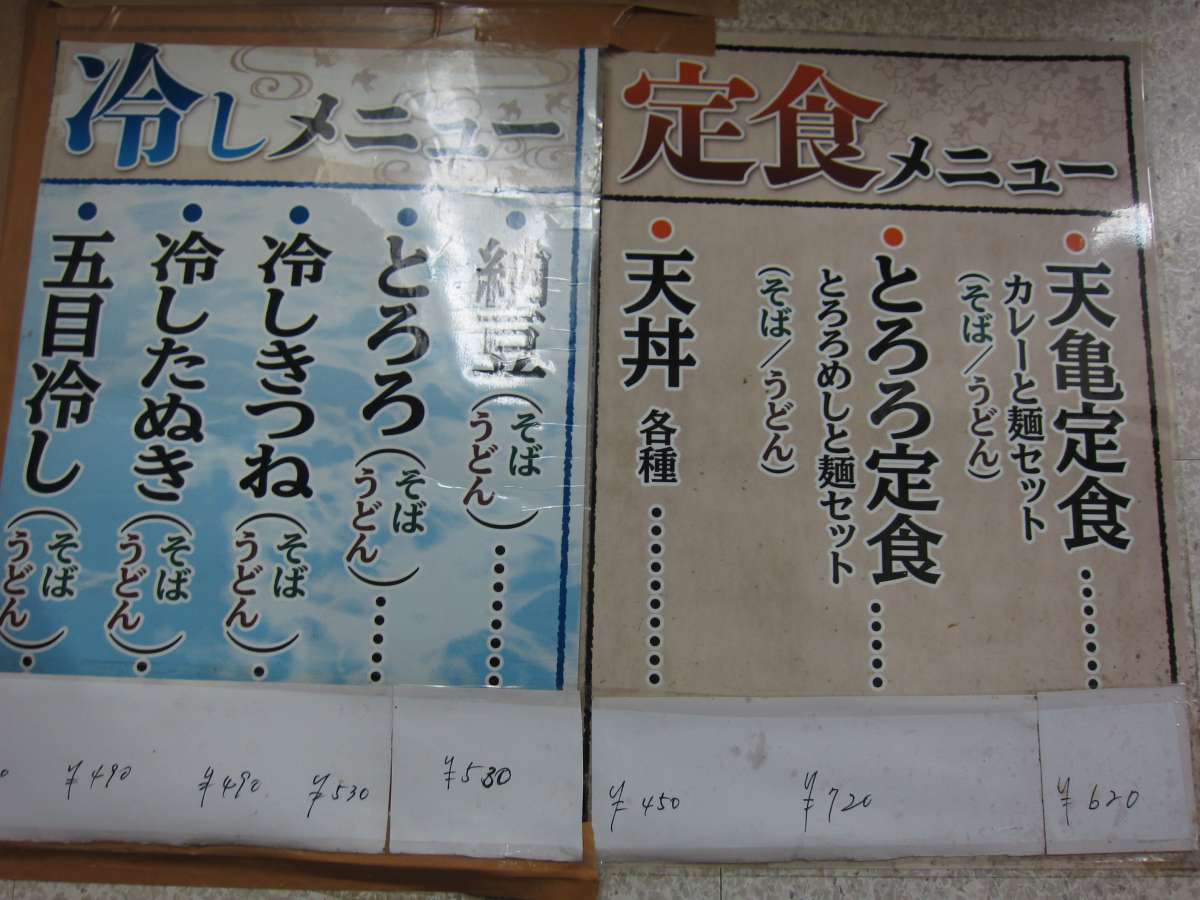 冷しメニュー
納豆(そば
うどん)・・・・・・・・
とろろ(そば
うどん)・・・・・
冷しきつね(そば
うどん)・
冷したぬき(そば
うどん)・
五目冷し(そば
うどん)・
¥490
¥490
¥530
¥530
定食メニュー
天亀定食・・・・・・・
カレーと麺セット
(そば/うどん)
とろろ定食・・・・・
とろろめしと麺セット
(そば/うどん)
天丼 各種・・・・・・・・・
¥450
¥720
¥620